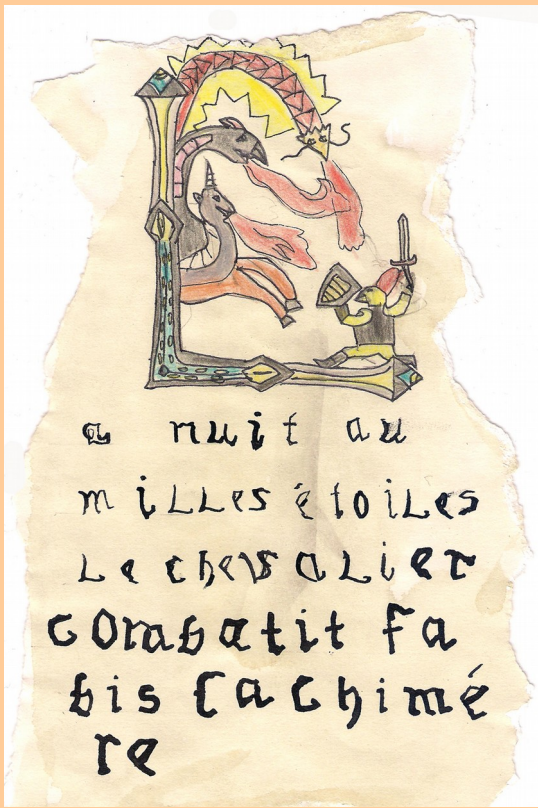 La nuit au
milles étoiles
Le chevalier
combatit fa
bis la chimé
re